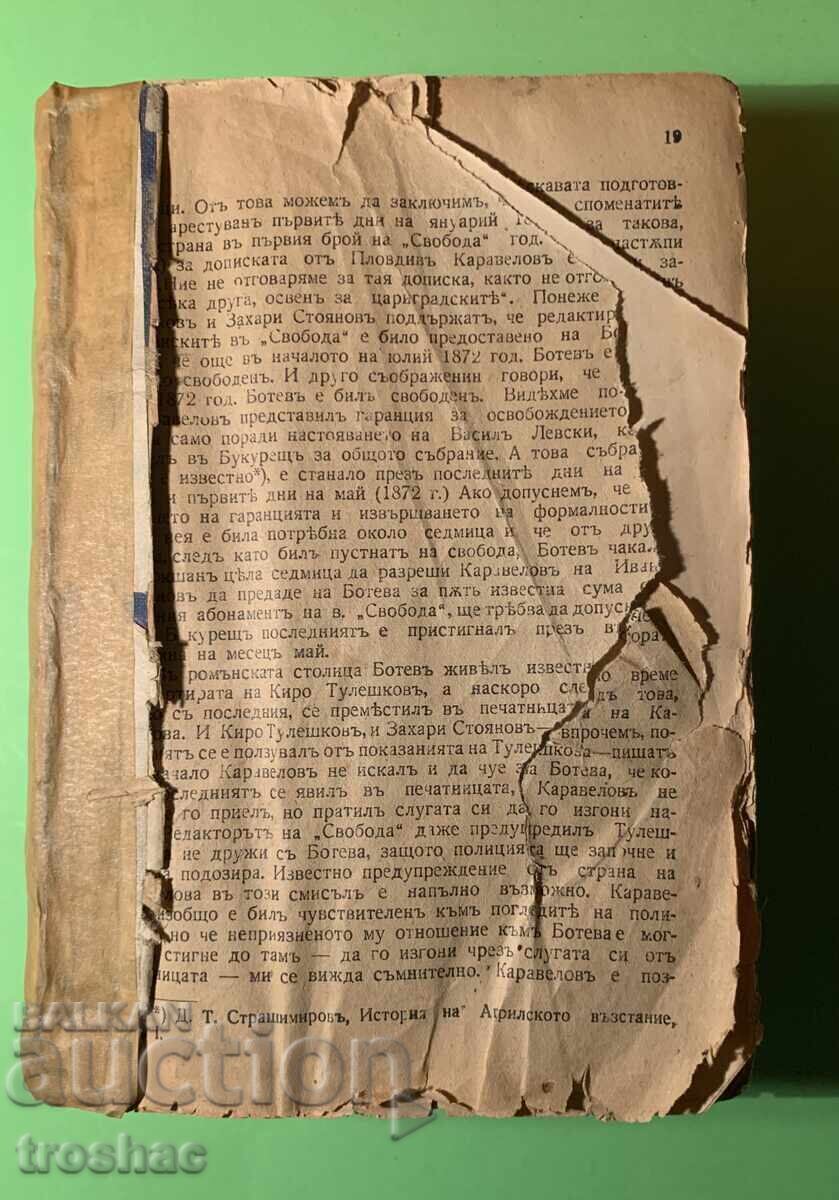 19
скавата подготов-
ни. Отъ това можемъ да заключимъ, споменатитѣ
арестуванъ първитѣ дни на януарий за такова,
страна въ първия брой на „Свобода“ год. настѫпи
за дописката отъ Пловдивъ Каравеловъ е за-
Ние не отговаряме за тая дописка, както не отго
ка друга, освенъ за цариградскитѣ“. Понеже
овъ и Захари Стояновъ поддържатъ, че редактир
скитѣ въ „Свобода“ е било предоставено на Бо
е още въ началото на юлий 1872 год. Ботевъ е
свободенъ. И друго съображении говори, че
872 год. Ботевъ е билъ свободенъ. Видѣхме по-
авеловъ представилъ гаранция за освобождението
а само поради настояването на Василъ Левски, ка
лъ въ Букурещъ за общото събрание. А това събра
е известно*), е станало презъ последнитѣ дни на
и първитѣ дни на май (1872 г.) Ако допуснемъ, че
ето на гаранцията и извършването на формалности
нея е била потрѣбна около седмица и че отъ дру
а, следъ като билъ пустнатъ на свобода, Ботевъ чака
кшанъ цѣла седмица да разреши Каравеловъ на Иван
новъ да предаде на Ботева за пѫть известна сума
ния абонаментъ на в. „Свобода“, ще трѣбва да допусн
Букурещъ последниятъ е пристигналъ презъ втората
на на месецъ май.
ъ ромънската столица Ботевъ живѣлъ известно време
ртирата на Киро Тулешковъ, а наскоро следъ това,
о съ последния, се премѣстилъ въ печатницата на Ка-
ова. И Киро Тулешковъ, и Захари Стояновъ—впрочемъ, по-
ятъ се е ползувалъ отъ показанията на Тулешкова—пишатъ
ачало Каравеловъ не искалъ и да чуе за Ботева, че ко-
следниятъ се явилъ въ печатницата, Каравеловъ не
го приелъ, но пратилъ слугата си да го изгони на-
едакторътъ на „Свобода“ даже предупредилъ Тулеш-
не дружи съ Ботева, защото полицията ще започне и
а подозира. Известно предупреждение отъ страна на
лова въ този смисълъ е напълно възможно. Караве-
изобщо е билъ чувствителенъ къмъ погледитѣ на поли-
но че неприязненото му отношение къмъ Ботева е мог-
стигне до тамъ — да го изгони чрезъ слугата си отъ
ницата — ми се вижда съмнително. Каравеловъ е поз-
*) Д. Т. Страшимировъ, История на Априлското възстание,
I.
BALKAN
auction
troshac